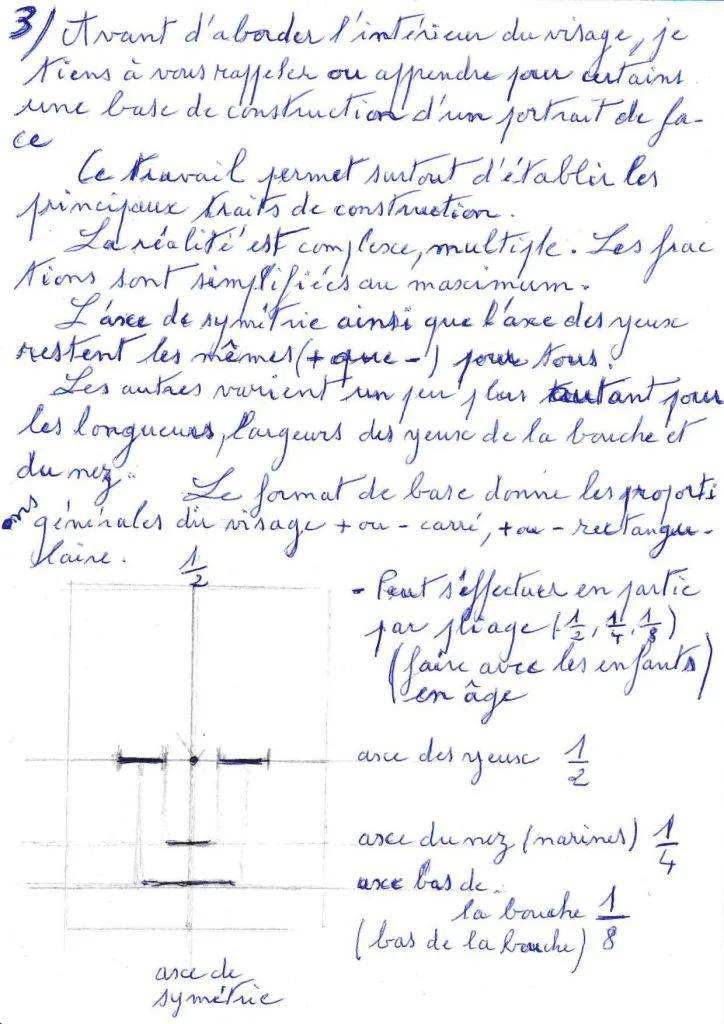 3) Avant d'aborder l'intérieur du visage, je
tiens à vous rappeler ou apprendre pour certains
une base de construction d'un portrait de fa-
ce
Ce travail permet surtout d'établir les
principaux traits de construction.
La réalité est complexe, multiple. Les frac
tions sont simplifiées au maximum.
L'axe de symétrie ainsi que l'axe des yeux
restent les mêmes (+ que -) pour tous.
Les autres varient un peu plus autant pour
les longueurs, largeurs des yeux de la bouche et
du nez.
Le format de base donne les proporti
ons générales du visage + ou - carré, + ou - rectangu-
laire.
1/2
- Peut s'effectuer en partie
par pliage (1/2, 1/4, 1/8)
(faire avec les enfants)
en âge
axe des yeux 1/2
axe du nez (narines) 1/4
axe bas de
la bouche 1/8
(bas de la bouche)
axe de
symétrie